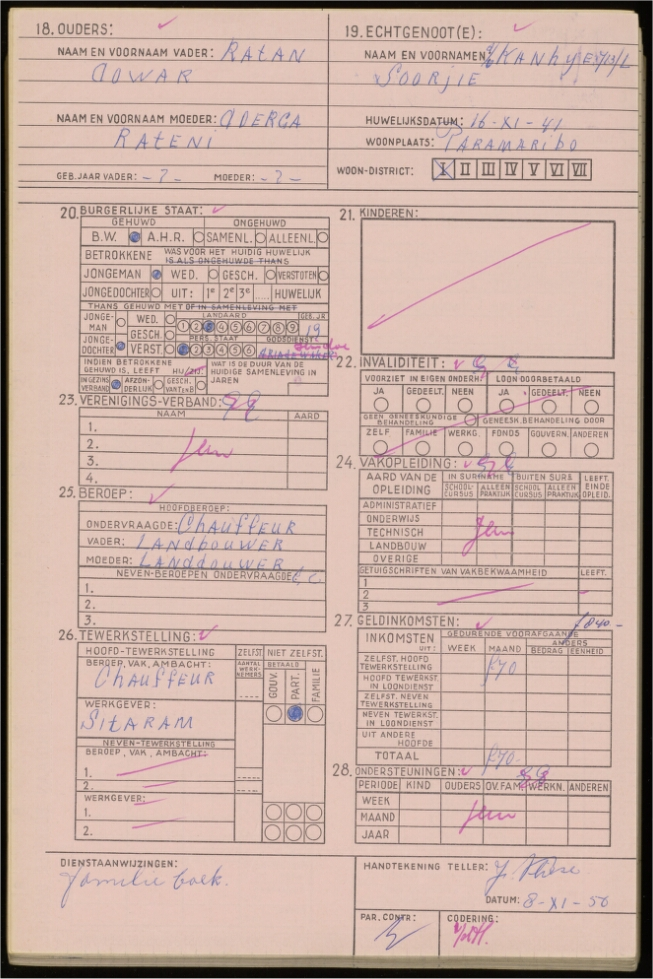 18. OUDERS:
NAAM EN VOORNAAM VADER: RATAN
ADWAR
NAAM EN VOORNAAM MOEDER: ADERGA
RATENI
GEB. JAAR VADER: - ? - MOEDER: - ? -
19. ECHTGENOOT(E):
NAAM EN VOORNAMEN: KANHYE
SOORJIE
HUWELIJKSDATUM: 16-XI-41
WOONPLAATS: PARAMARIBO
WOON-DISTRICT: I II III IV V VI VII
20. BURGERLIJKE STAAT:
GEHUWD ONGEHUWD
B.W. A.H.R. SAMENL. ALLEENL.
BETROKKENE WAS VOOR HET HUIDIG HUWELIJK
IS ALS ONGEHUWDE THANS
JONGEMAN WED. GESCH. VERSTOTEN
JONGEDOCHTER UIT: 1e 2e 3e .... HUWELIJK
THANS GEHUWD MET OF IN SAMENLEVING MET
JONGE-MAN WED. LANDAARD GEB. JR
1 2 3 4 5 6 7 8 9 19
GESCH.
JONGE-DOCHTER VERST. PERS. STAAT GODSDIENST
1 2 3 4 5 6
INDIEN BETROKKE GEHUWD IS, LEEFT HIJ/ZIJ:
WAT IS DE DUUR VAN DE HUIDIGE SAMENLEVING IN JAREN
IN GEZINS VERBAND AFZON-DERLIJK GESCH. V. ANT. EN B
21. KINDEREN:
22. INVALIDITEIT:
VOORZIET IN EIGEN ONDERH: LOON DOORBETAALD
JA GEDEELT. NEEN JA GEDEELT. NEEN
GEEN GENEESKUNDIGE BEHANDELING GENEESK. BEHANDELING DOOR
ZELF FAMILIE WERKG. FONDS GOUVERN. ANDEREN
23. VERENIGINGS-VERBAND:
NAAM AARD
1.
2.
3.
4.
24. VAKOPLEIDING:
AARD VAN DE OPLEIDING IN SURINAME BUITEN SURS LEEFT. EINDE OPLEID.
SCHOOL-CURSUS ALLEEN PRAKTIJK SCHOOL CURSUS ALLEEN PRAKTIJK
ADMINISTRATIEF
ONDERWIJS
TECHNISCH
LANDBOUW
OVERIGE
GETUIGSCHRIFTEN VAN VAKBEKWAAMHEID LEEFT.
1
2
3
25. BEROEP:
HOOFDBEROEP:
ONDERVRAAGDE: CHAUFFEUR
VADER: LANDBOUWER
MOEDER: LANDBOUWER
NEVEN-BEROEPEN ONDERVRAAGDE
1.
2.
3.
26. TEWERKSTELLING:
HOOFD-TEWERKSTELLING ZELFST. NIET ZELFST.
BEROEP, VAK, AMBACHT: AANTAL WERK-NEMERS BETAALD
CHAUFFEUR GOUV. PART. FAMILIE
WERKGEVER:
SITARAM
NEVEN-TEWERKSTELLING
BEROEP, VAK, AMBACHT:
1.
2.
WERKGEVER:
1.
2.
27. GELDINKOMSTEN: f840-
INKOMSTEN UIT: GEDURENDE VOORAFGAANDE
WEEK MAAND ANDERS
BEDRAG EENHEID
ZELFST. HOOFD TEWERKSTELLING f70
HOOFD TEWERKST. IN LOONDIENST
ZELFST. NEVEN TEWERKSTELLING
NEVEN TEWERKST. IN LOONDIENST
UIT ANDERE HOOFDE
TOTAAL f70-
28. ONDERSTEUNINGEN:
PERIODE KIND OUDERS OV. FAM. WERKN. ANDEREN
WEEK
MAAND
JAAR
DIENSTAANWIJZINGEN:
familie boek.
HANDTEKENING TELLER:
DATUM: 8-XI-50
PAR. CONTR: CODERING: